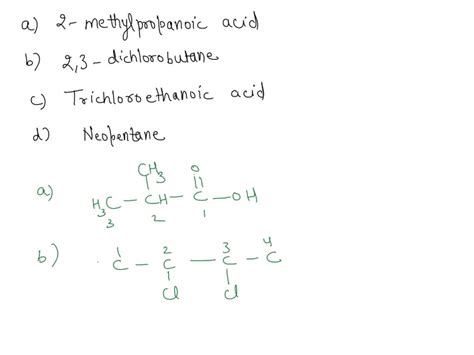 a) 2-methylpropanoic acid
b) 2,3-dichlorobutane
c) Trichloroethanoic acid
d) Neopentane
CH3 O
a) H3C - CH - C - OH
3 2 1
1 2 3 4
b) C - C - C - C
Cl Cl